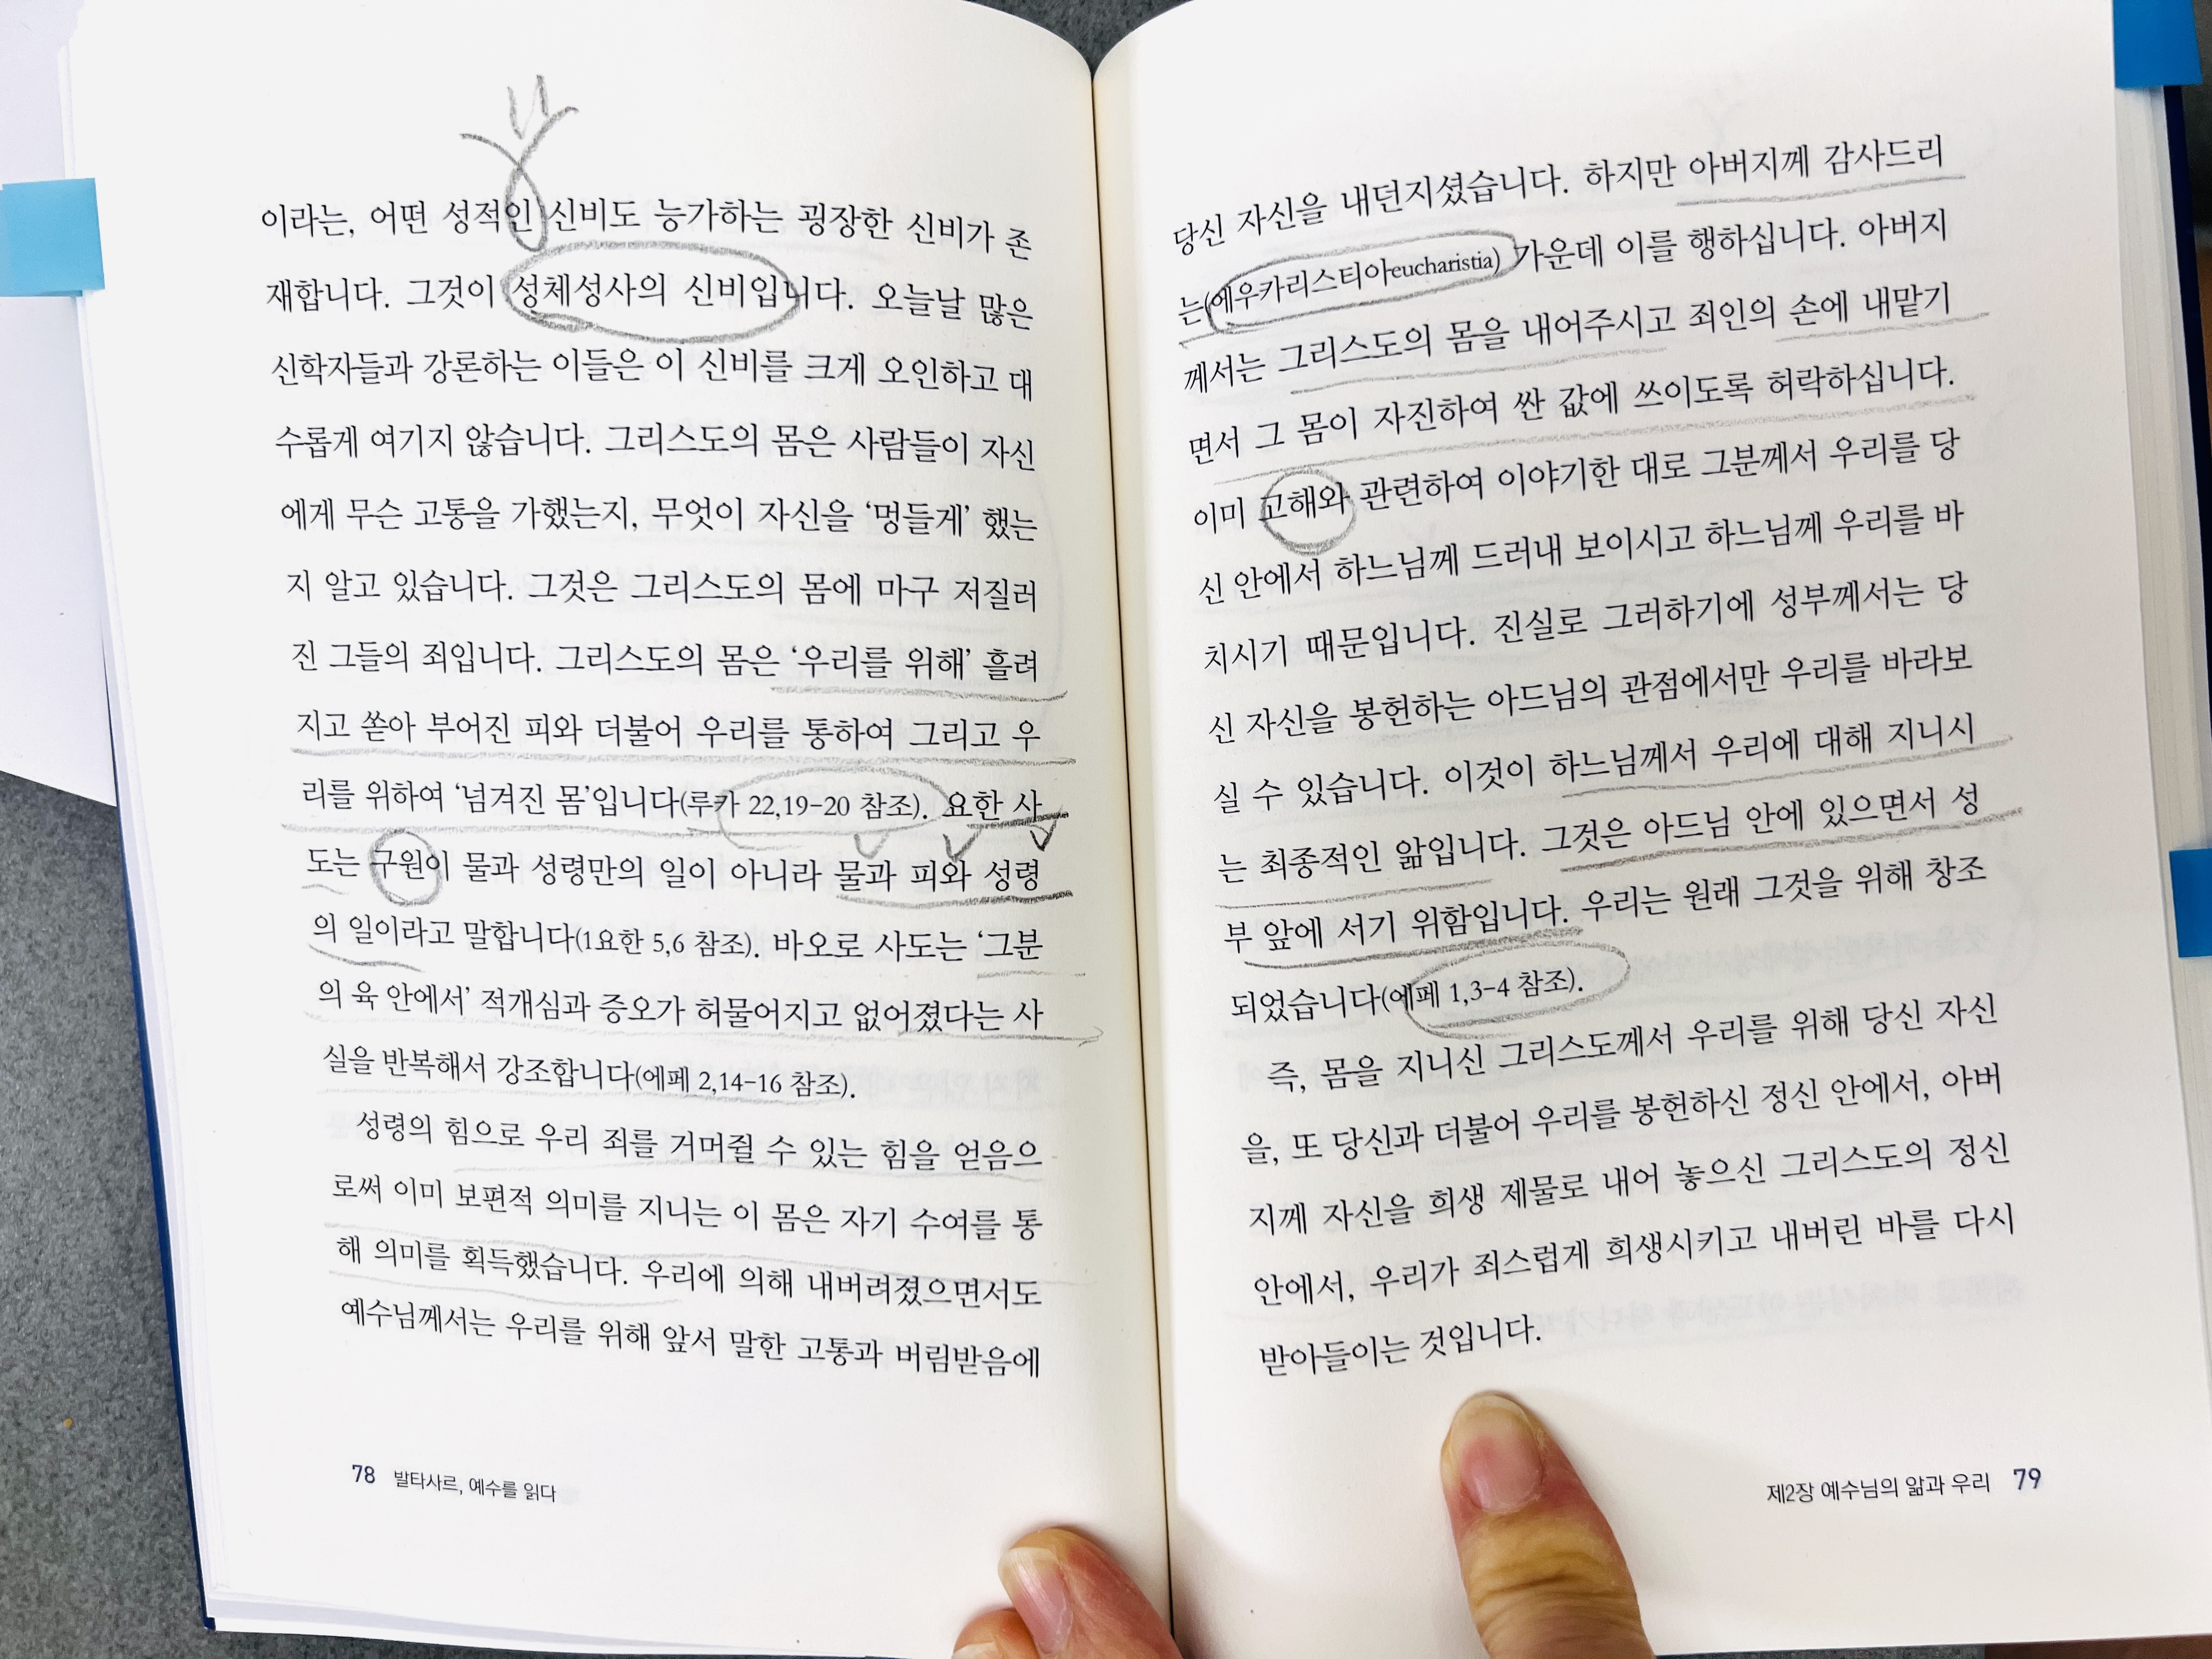 이라는, 어떤 성적인 신비도 능가하는 굉장한 신비가 존
재합니다. 그것이 성체성사의 신비입니다. 오늘날 많은
신학자들과 강론하는 이들은 이 신비를 크게 오인하고 대
수롭게 여기지 않습니다. 그리스도의 몸은 사람들이 자신
에게 무슨 고통을 가했는지, 무엇이 자신을 ‘멍들게’ 했는
지 알고 있습니다. 그것은 그리스도의 몸에 마구 저질러
진 그들의 죄입니다. 그리스도의 몸은 ‘우리를 위해’ 흘려
지고 쏟아 부어진 피와 더불어 우리를 통하여 그리고 우
리를 위하여 ‘넘겨진 몸’입니다(루카 22,19-20 참조). 요한 사
도는 구원이 물과 성령만의 일이 아니라 물과 피와 성령
의 일이라고 말합니다(1요한 5,6 참조). 바오로 사도는 ‘그분
의 육 안에서’ 적개심과 증오가 허물어지고 없어졌다는 사
실을 반복해서 강조합니다(에페 2,14-16 참조).
성령의 힘으로 우리 죄를 거머쥘 수 있는 힘을 얻음으
로써 이미 보편적 의미를 지니는 이 몸은 자기 수여를 통
해 의미를 획득했습니다. 우리에 의해 내버려졌으면서도
예수님께서는 우리를 위해 앞서 말한 고통과 버림받음에
78 발타사르, 예수를 읽다
당신 자신을 내던지셨습니다. 하지만 아버지께 감사드리
는(에우카리스티아eucharistia) 가운데 이를 행하십니다. 아버지
께서는 그리스도의 몸을 내어주시고 죄인의 손에 내맡기
면서 그 몸이 자진하여 싼 값에 쓰이도록 허락하십니다.
이미 고해와 관련하여 이야기한 대로 그분께서 우리를 당
신 안에서 하느님께 드러내 보이시고 하느님께 우리를 바
치시기 때문입니다. 진실로 그러하기에 성부께서는 당
신 자신을 봉헌하는 아드님의 관점에서만 우리를 바라보
실 수 있습니다. 이것이 하느님께서 우리에 대해 지니시
는 최종적인 앎입니다. 그것은 아드님 안에 있으면서 성
부 앞에 서기 위함입니다. 우리는 원래 그것을 위해 창조
되었습니다(에페 1,3-4 참조).
즉, 몸을 지니신 그리스도께서 우리를 위해 당신 자신
을, 또 당신과 더불어 우리를 봉헌하신 정신 안에서, 아버
지께 자신을 희생 제물로 내어 놓으신 그리스도의 정신
안에서, 우리가 죄스럽게 희생시키고 내버린 바를 다시
받아들이는 것입니다.
제2장 예수님의 앎과 우리 79